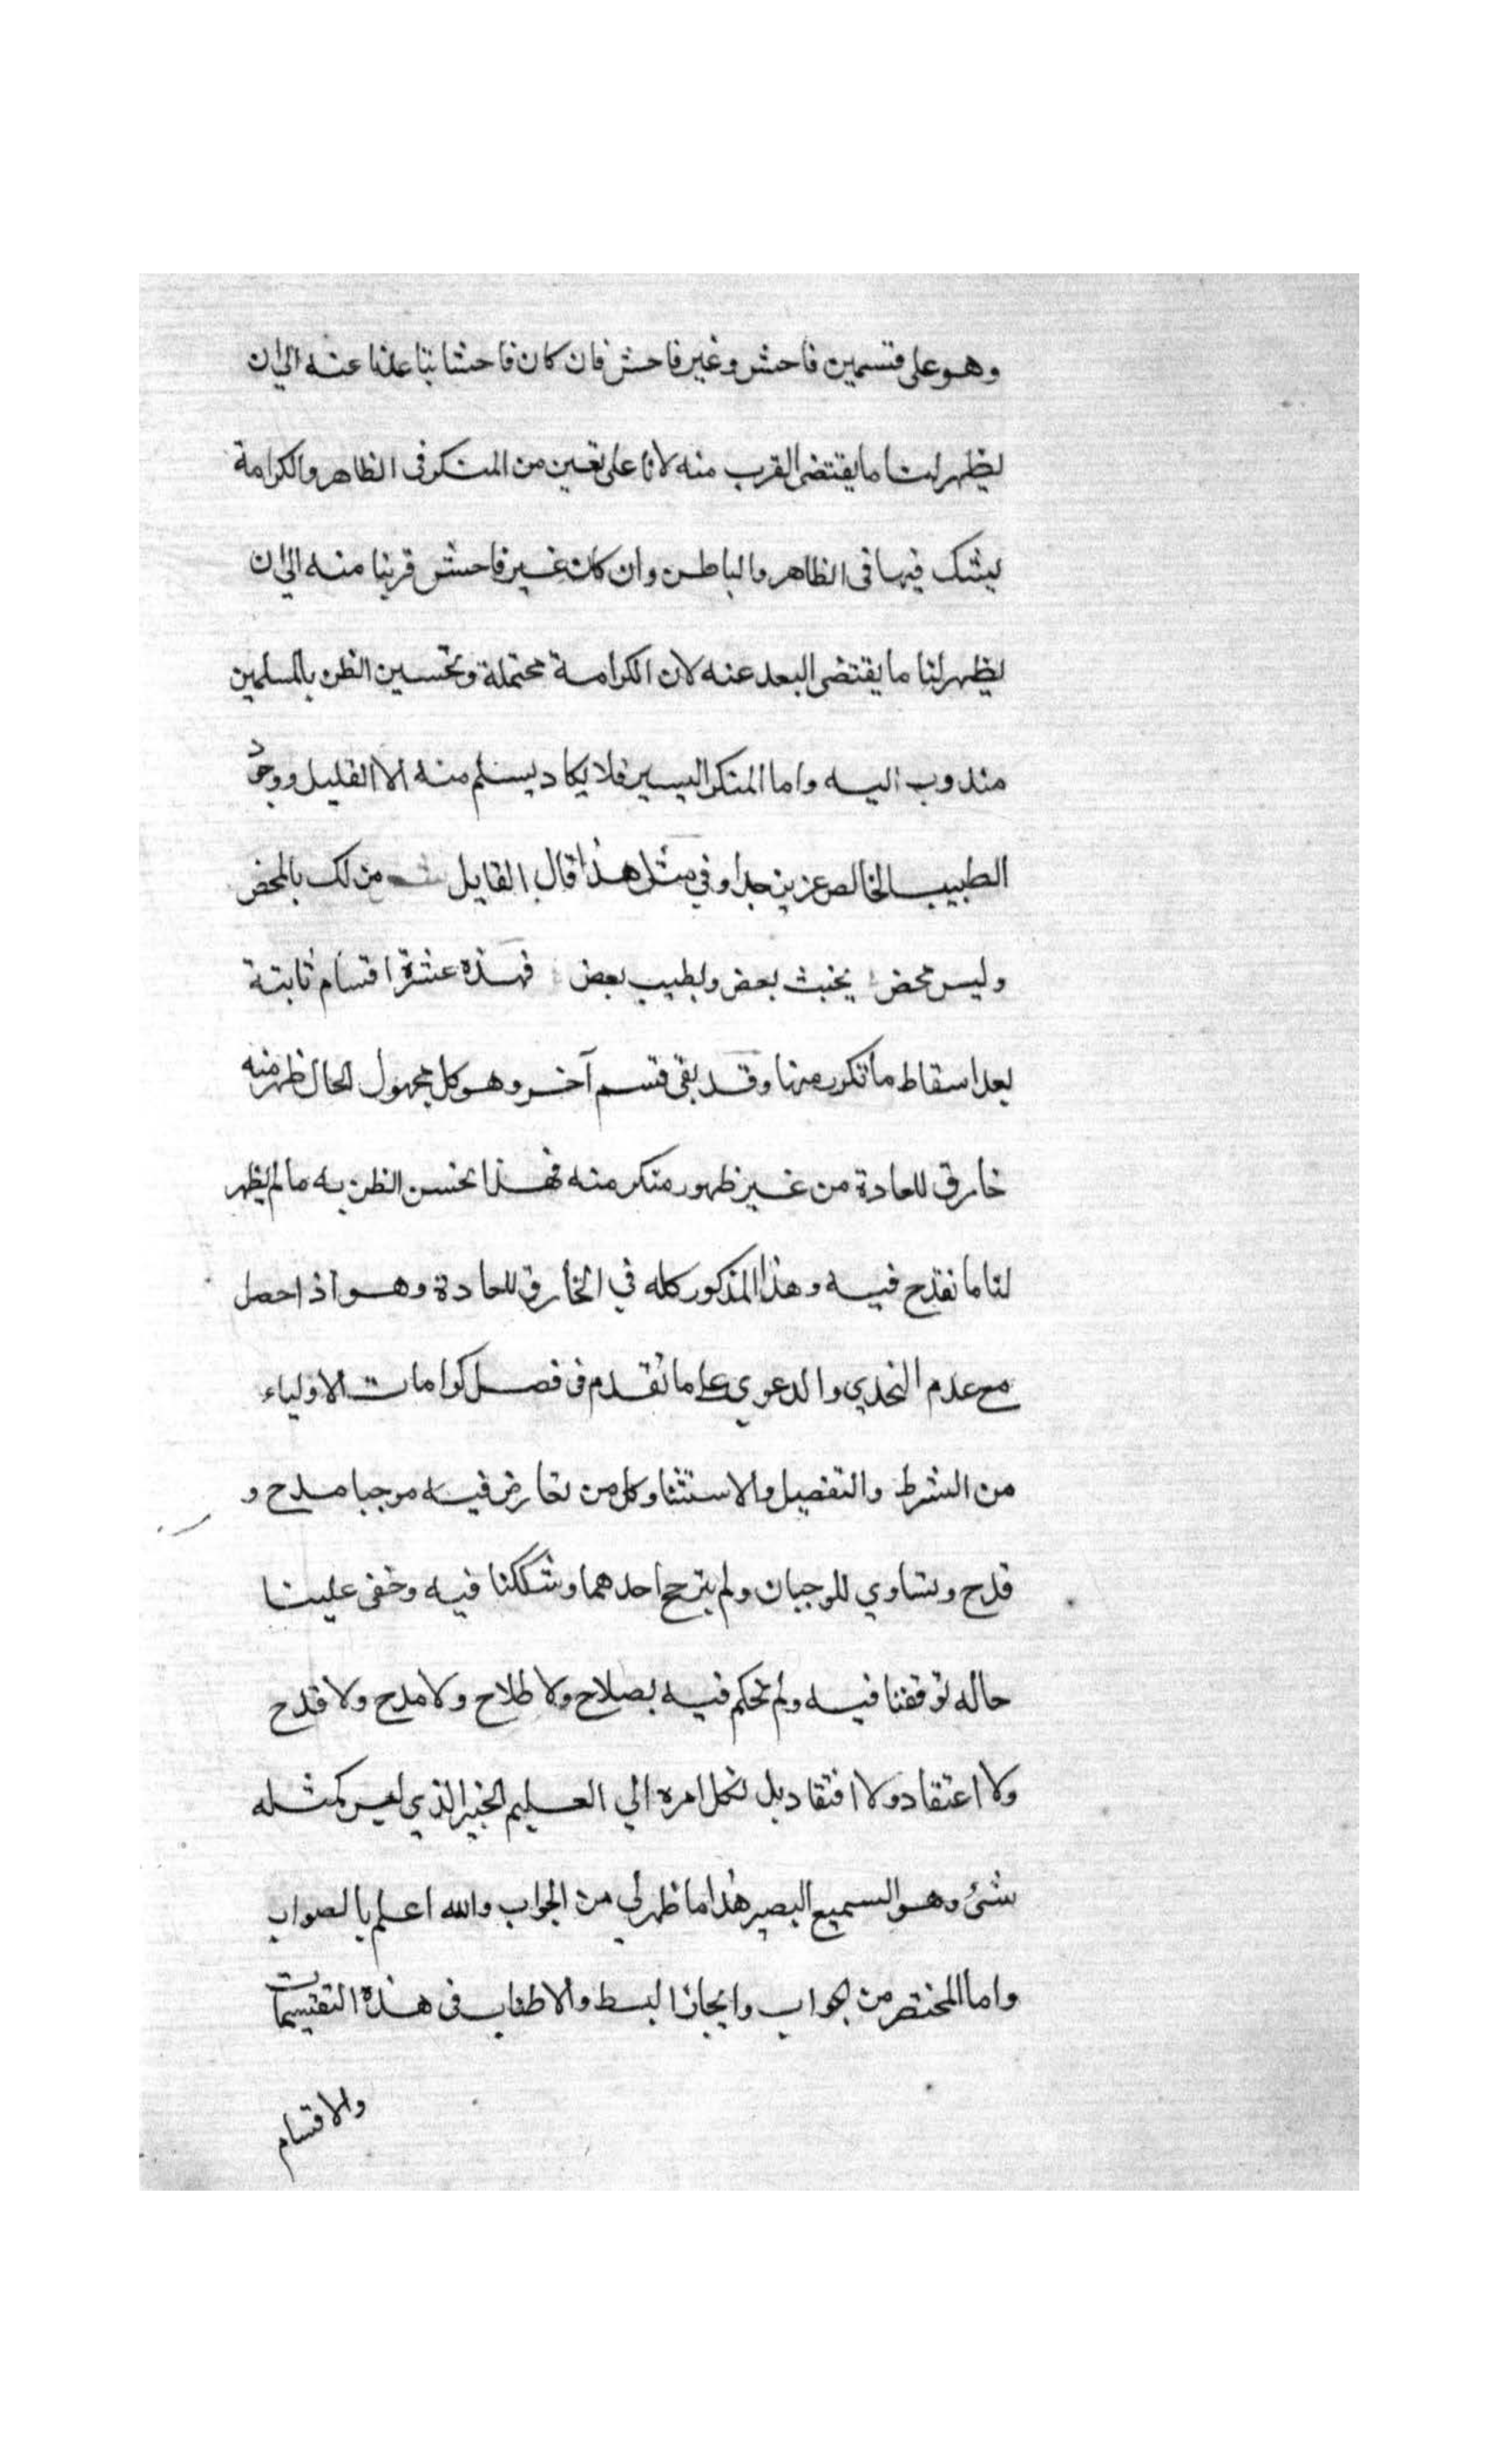 وهو على قسمين فاحش وغير فاحش فان كان فاحشا تباعدنا عنه الى ان
يظهر لنا ما يقتضى القرب منه لانا على يقين من المنكر فى الظاهر والكرامة
يشك فيها فى الظاهر والباطن وان كان غير فاحش قربنا منه الى ان
يظهر لنا ما يقتضى البعد عنه لان الكرامة محتملة وتحسين الظن بالمسلمين
مندوب اليه واما المنكر اليسير فلا يكاد يسلم منه الا القليل ووجود
الطبيب الخالص عزيز جدا وفي مثل هذا قال القايل من لك بالمحض
وليس محض يخبث بعض ويطيب بعض فهذه عشرة اقسام ثابتة
بعد اسقاط ما تكرر منها وقد بقى قسم آخر وهو كل مجهول الحال ظهر منه
خارق للعادة من غير ظهور منكر منه فهذا نحسن الظن به ما لم يظهر
لنا ما نقدح فيه وهذا المذكور كله في الخارق للعادة وهو اذا حصل
مع عدم التحدي والدعوي على ما تقدم فى فصل كرامات الاولياء
من الشرط والتفصيل والاستثنا وكل من تعارض فيه موجبا مدح و
قدح وتساوي الموجبان ولم يترجح احدهما وشككنا فيه وخفى علينا
حاله توقفنا فيه ولم نحكم فيه بصلاح ولا طلاح ولا مدح ولا قدح
ولا اعتقاد ولا افتقاد بل نكل امره الي العليم الخبير الذي ليس كمثله
شئ وهو السميع البصير هذا ما ظهر لي من الجواب والله اعلم بالصواب
واما المختصر من الجواب وايجاز البسط والاطناب فى هذه التقسيمات
والاقسام